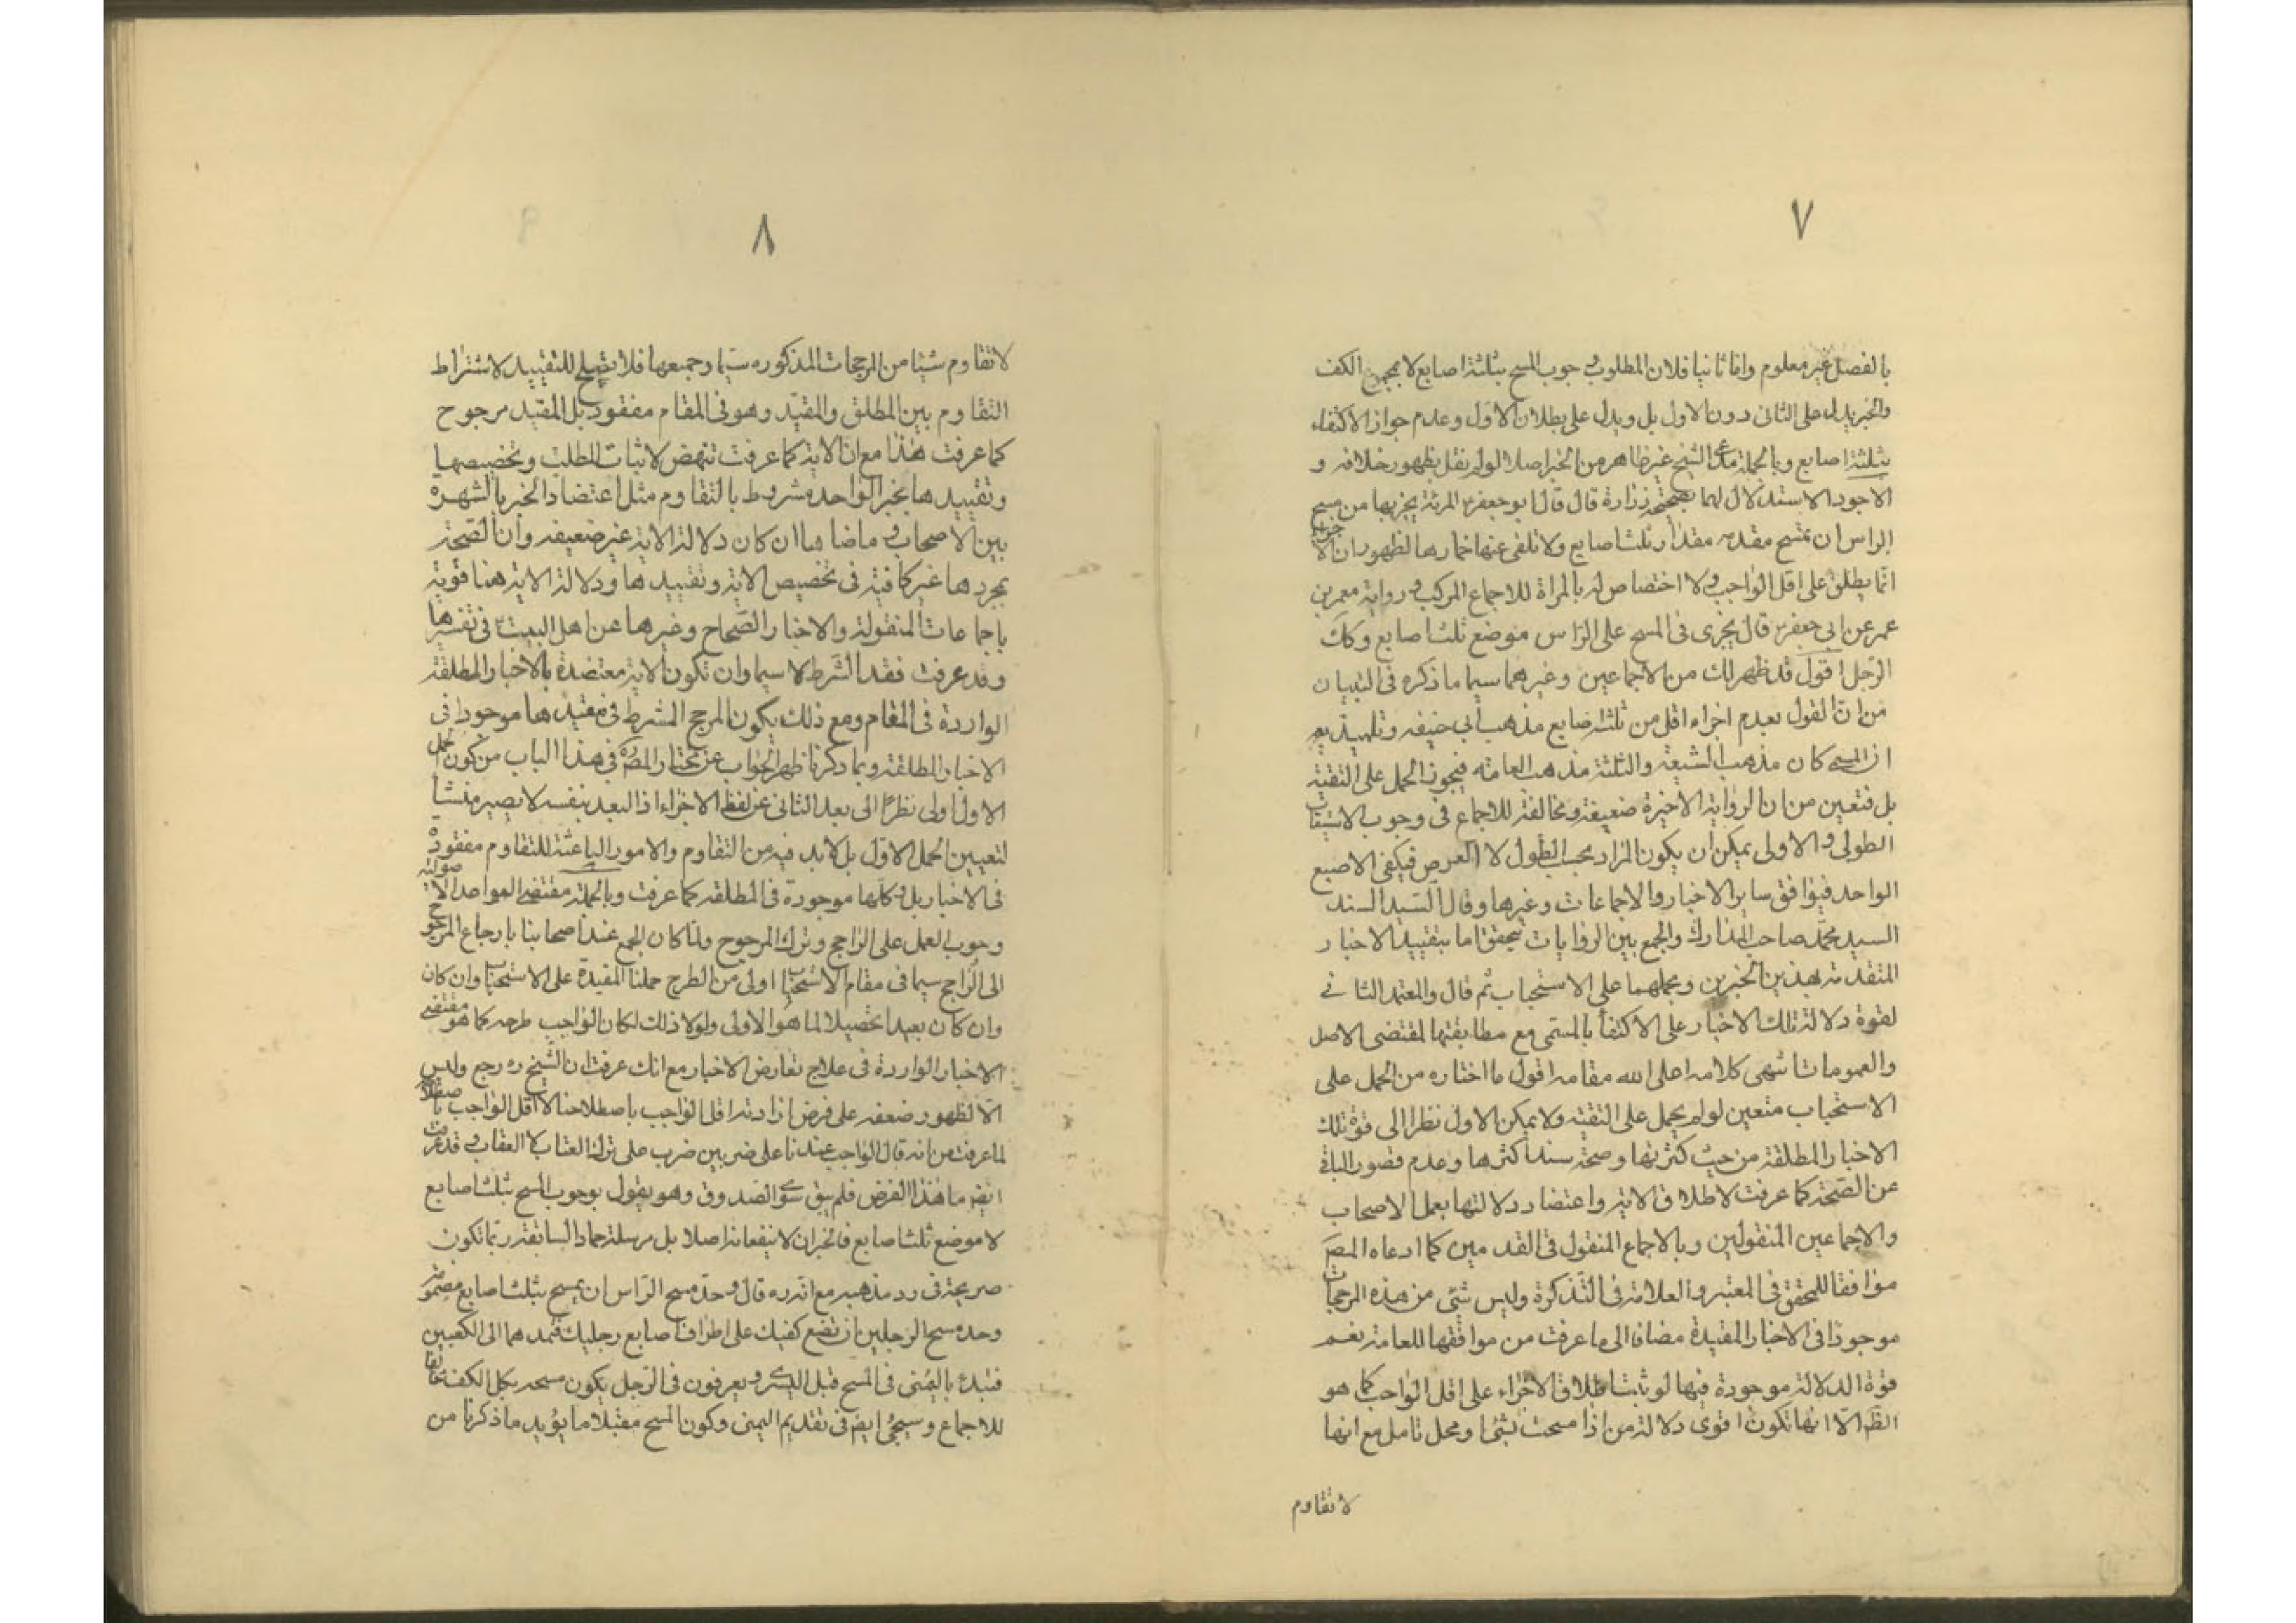 ٧
بالفصل غير معلوم واما ثانيا فلان المطلوب وجوب المسح بثلثة اصابع لا بمجموع الكف
والخبر يدل على الثانى دون الاول بل ويدل على بطلان الاول وعدم جواز الاكتفاء
بثلثة اصابع وبالجملة مدعى الشيخ غير ظاهر من الخبر اصلا لو لم نقل بظهور خلافه و
الاجود الاستدلال لهما بصحيحة زرارة قال قال ابو جعفر المرئة يجزيها من مسح
الراس ان تمسح مقدمه مقدار ثلث اصابع ولا تلقى عنها خمارها لظهور ان الاجزاء
انما يطلق على اقل الواجب ولا اختصاص له بالمراة للاجماع المركب ورواية معمر بن
عمر عن ابى جعفر قال يجزى فى المسح على الراس موضع ثلث اصابع وكك
الرجل اقول قد ظهر لك من الاجماعين وغيرهما سيما ما ذكره فى التبيان
من ان القول بعدم اجزاء اقل من ثلث اصابع مذهب ابى حنيفه وتلميذيه
ان المسمى كان مذهب الشيعة والثلثة مذهب العامه فيجوز الحمل على التقية
بل فتعين من ان الرواية الاخيرة ضعيفة ومخالفة للاجماع فى وجوب الاستيعاب
الطولى والاولى يمكن ان يكون المراد بحسب الطول لا العرض فيكفى الاصبع
الواحد فيوافق ساير الاخبار والاجماعات وغيرها وقال السيد السند
السيد محمد صاحب المدارك والجمع بين الروايات يتحقق اما بتقييد الاخبار
المتقدمة بهذين الخبرين وبحملهما على الاستحباب ثم قال والمعتمد الثانى
لقوة دلالة تلك الاخبار على الاكتفأ بالمسمى مع مطابقتها لمقتضى الاصل
والعمومات انتهى كلامه اعلى الله مقامه اقول ما اختاره من الحمل على
الاستحباب متعين لو لم يحمل على التقية ولا يمكن الاول نظرا الى قوة تلك
الاخبار المطلقة من حيث كثرتها وصحة سند اكثرها وعدم قصور الباقى
عن الصحة كما عرفت لاطلاق الاية واعتضاد دلالتها بعمل الاصحاب
والاجماعين المنقولين وبالاجماع المنقول فى القدمين كما ادعاه المصَ
موافقا للمحقق فى المعتبر والعلامة فى التذكرة وليس شئ من هذه المرجحات
موجودا فى الاخبار المقيدة مضافا الى ما عرفت من موافقتها للعامة نعم
قوة الدلالة موجودة فيها لو ثبت اطلاق الاجزاء على اقل الواجب كما هو
الظَ الا انها تكون اقوى دلالة من اذا مسحت بشئ ومحل تامل مع انها
لا تقاوم
٨
لا تقاوم شيئا من المرجحات المذكوره سيما وجميعها فلا تصلح للتقييد لاشتراط
التقاوم بين المطلق والمقيد وهو فى المقام مفقود بل المقيد مرجوح
كما عرفت هذا مع ان الاية كما عرفت تنهض لاثبات المطلب وتخصيصها
وتقييدها بخبر الواحد مشروط بالتقاوم مثل اعتضاد الخبر بالشهرة
بين الاصحاب وما ضاهاها ان كان دلالة الاية غير ضعيفه وان الصحة
بمجردها غير كافية فى تخصيص الاية وتقييدها ودلالة الاية هنا قوية
باجماعات المنقولة والاخبار الصحاح وغيرها عن اهل البيت فى تفسيرها
وقد عرفت فقد الشرط لا سيما وان تكون الاية معتضدة بالاخبار المطلقة
الواردة فى المقام ومع ذلك يكون المرجح المشرط فى مقيدها موجود فى
الاخبار المطلقة وبما ذكرنا ظهر الجواب عن مختار المصَ ره فى هذا الباب من كون الحمل
الاول اولى نظرا الى بعد الثانى عن لفظ الاجزاء اذ البعد بنفسه لا يصير منشأ
لتعيين الحمل الاول بل لابد فيه من التقاوم والامور الباعثة للتقاوم مفقودة
فى الاخبار بل وكلها موجودة فى المطلقه كما عرفت وبالجملة مقتضى القواعد الاصولية
وجوب العمل على الراجح وترك المرجوح ولما كان الجمع عند اصحابنا بارجاع المرجوح
الى الراجح سيما فى مقام الاستحبا اولى من الطرح حملنا المقيدة على الاستحبا وان كان
وان كان بعيدا تحصيلا لما هو الاولى ولولا ذلك لكان الواجب طرحه كما هو مقتضى
الاخبار الواردة فى علاج تعارض الاخبار مع انك عرفت ان الشيخ ره رجع وليس
الا لظهور ضعفه على فرض ارادته اقل الواجب باصطلاحنا لا اقل الواجب باصطلاحه
لما عرفت من انه قال الواجب عندنا على ضربين ضرب على تركه العتاب لا العقاب وقد عرفت
ايضَ ما هذا الفرض فلم يبق سوى الصدوق وهو يقول بوجوب المسح بثلث اصابع
لا موضع ثلث اصابع فالخبران لا ينفعانه اصلا بل مرسلة حماد السابقة ربما تكون
صريحة فى رد مذهبه مع انه ره قال وحد مسح الراس ان يمسح بثلث اصابع مضمومة
وحد مسح الرجلين ان تضع كفيك على اطراف اصابع رجليك فتمدهما الى الكعبين
فتبدء باليمنى فى المسح قبل اليسرى ويعرفون فى الرجل يكون مسحه بكل الكف
للاجماع وسيجئ ايضَ فى تقديم اليمنى وكون المسح مقبلا ما يؤيد ما ذكرنا من